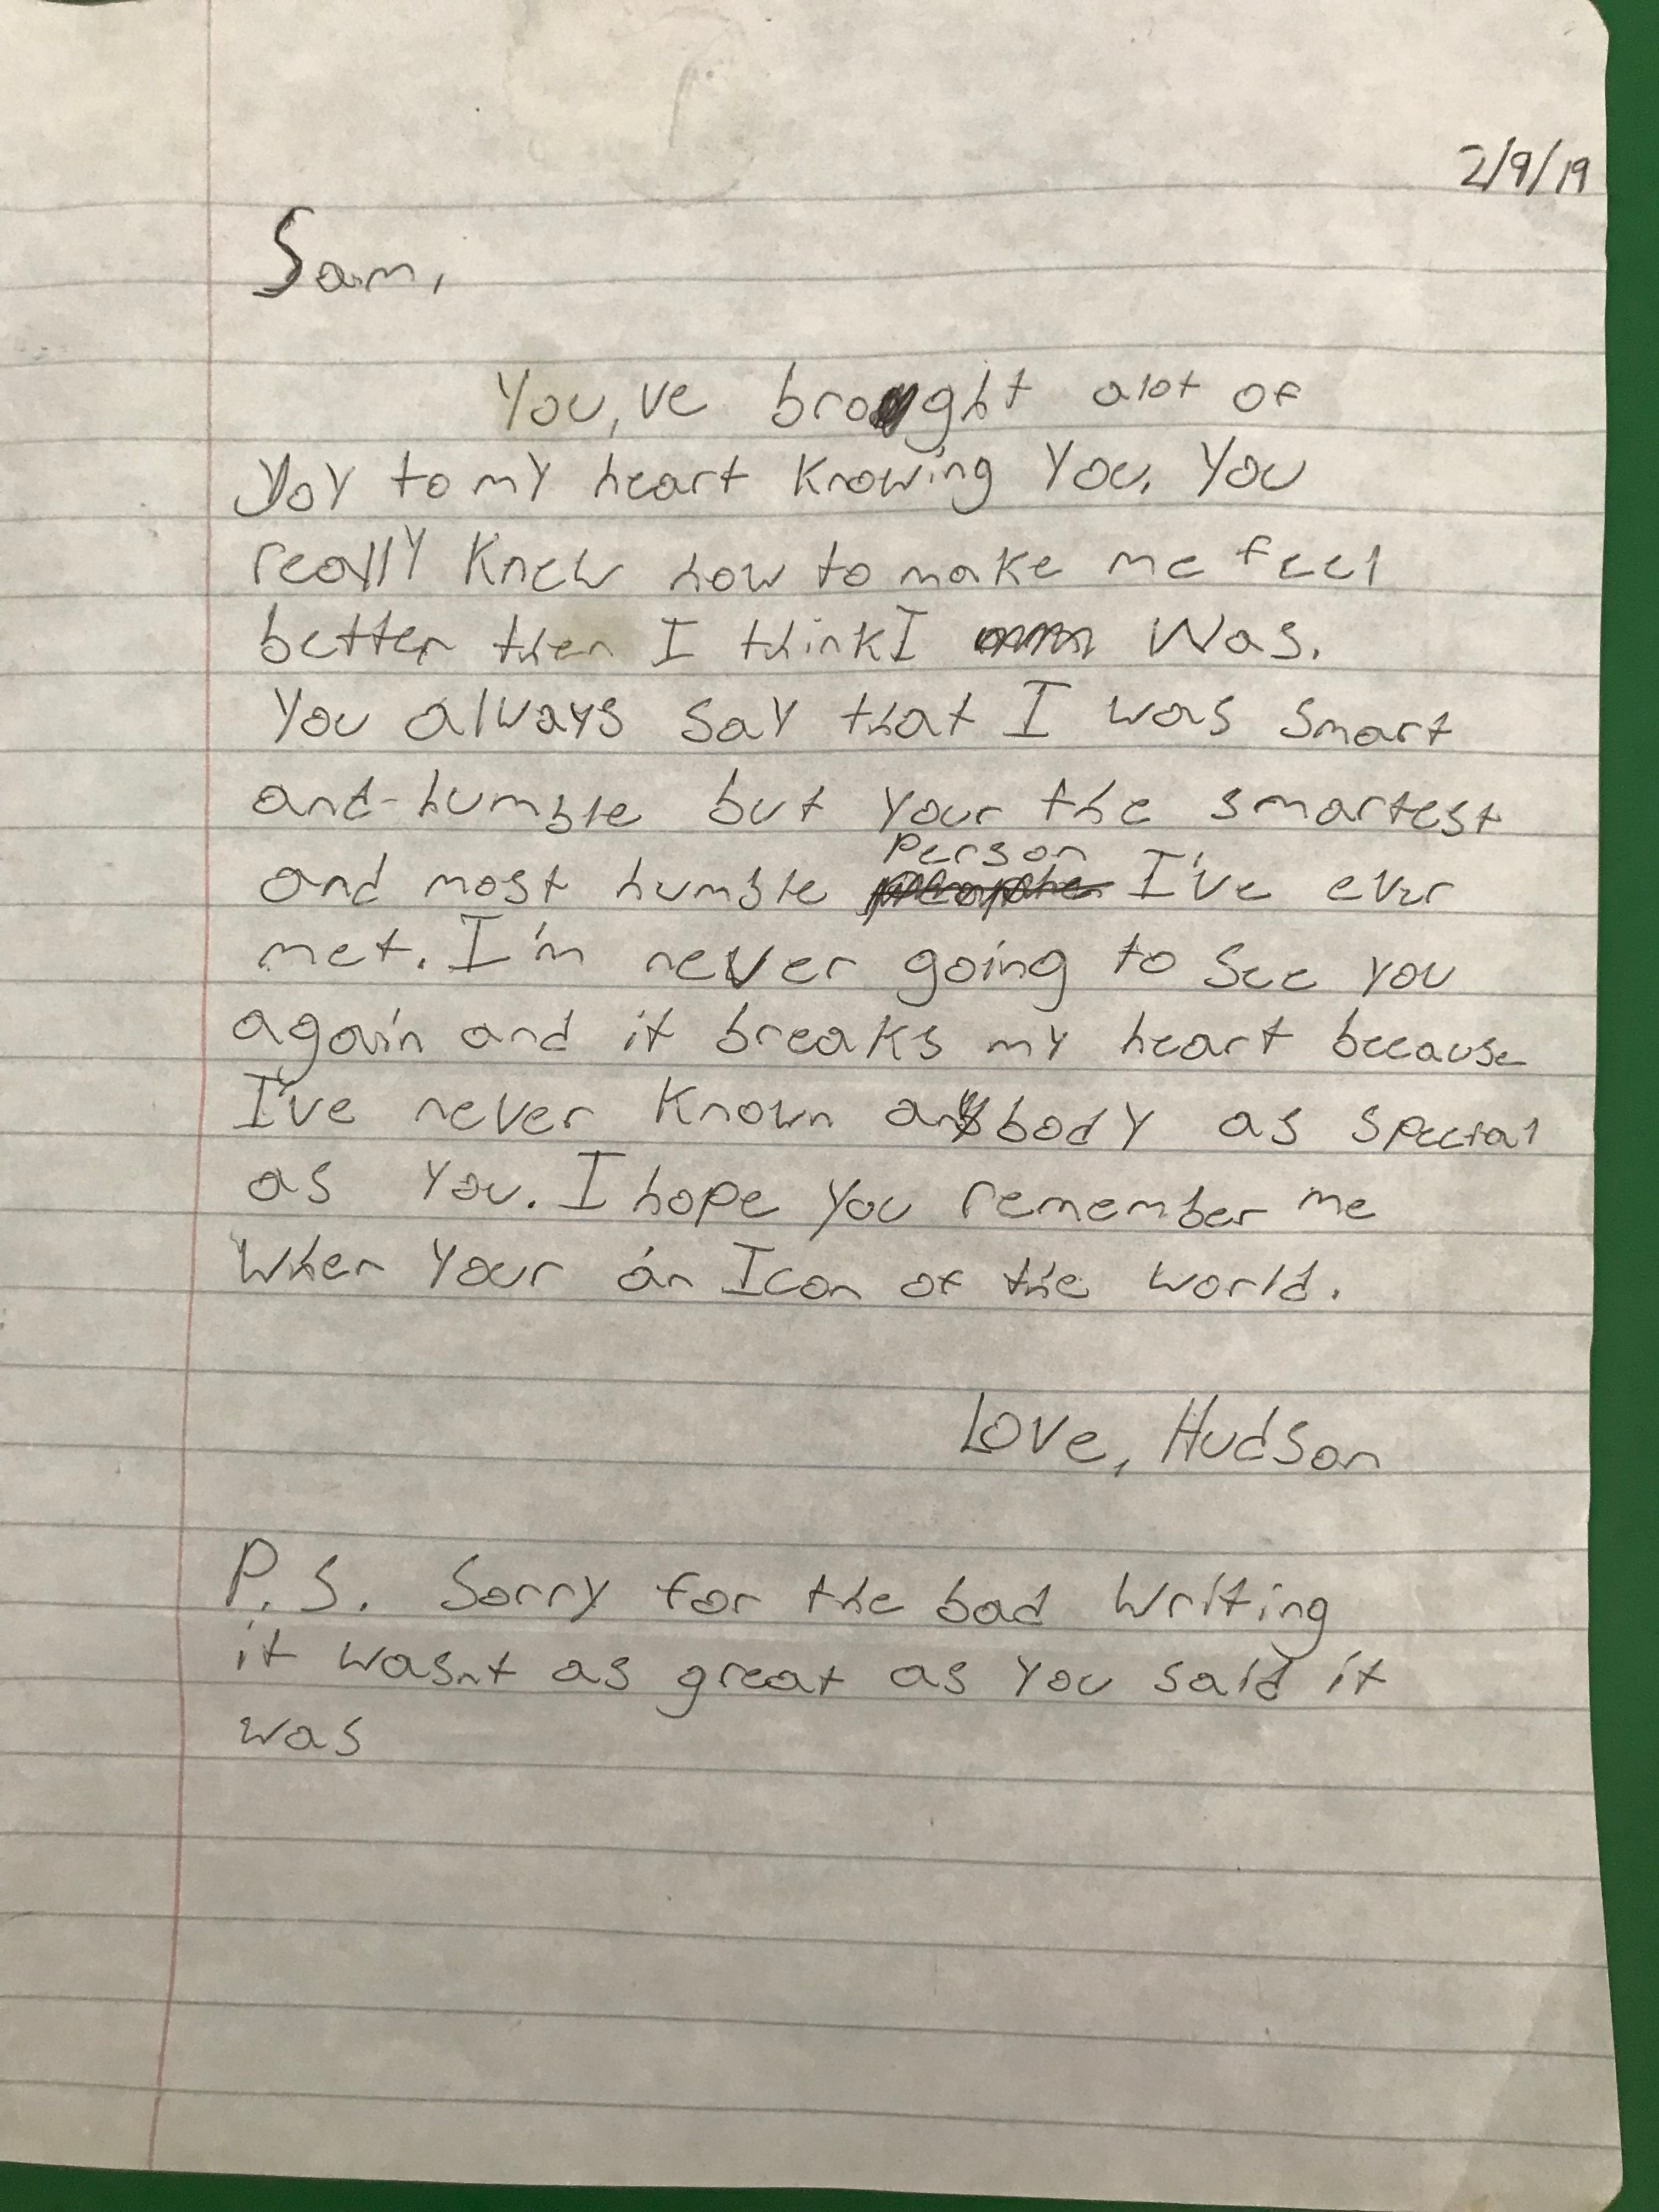 2/9/19
Sam,
You,ve brought alot of
Joy to my heart knowing you. You
really knew how to make me feel
better then I think I was.
You always say that I was smart
and humble but your the smartest
person
and most humble I've ever
met. I'm never going to see you
again and it breaks my heart because
I've never known anybody as special
as you. I hope you remember me
When your an Icon of the world.
Love, Hudson
P.S. Sorry for the bad writing
it wasnt as great as you said it
was